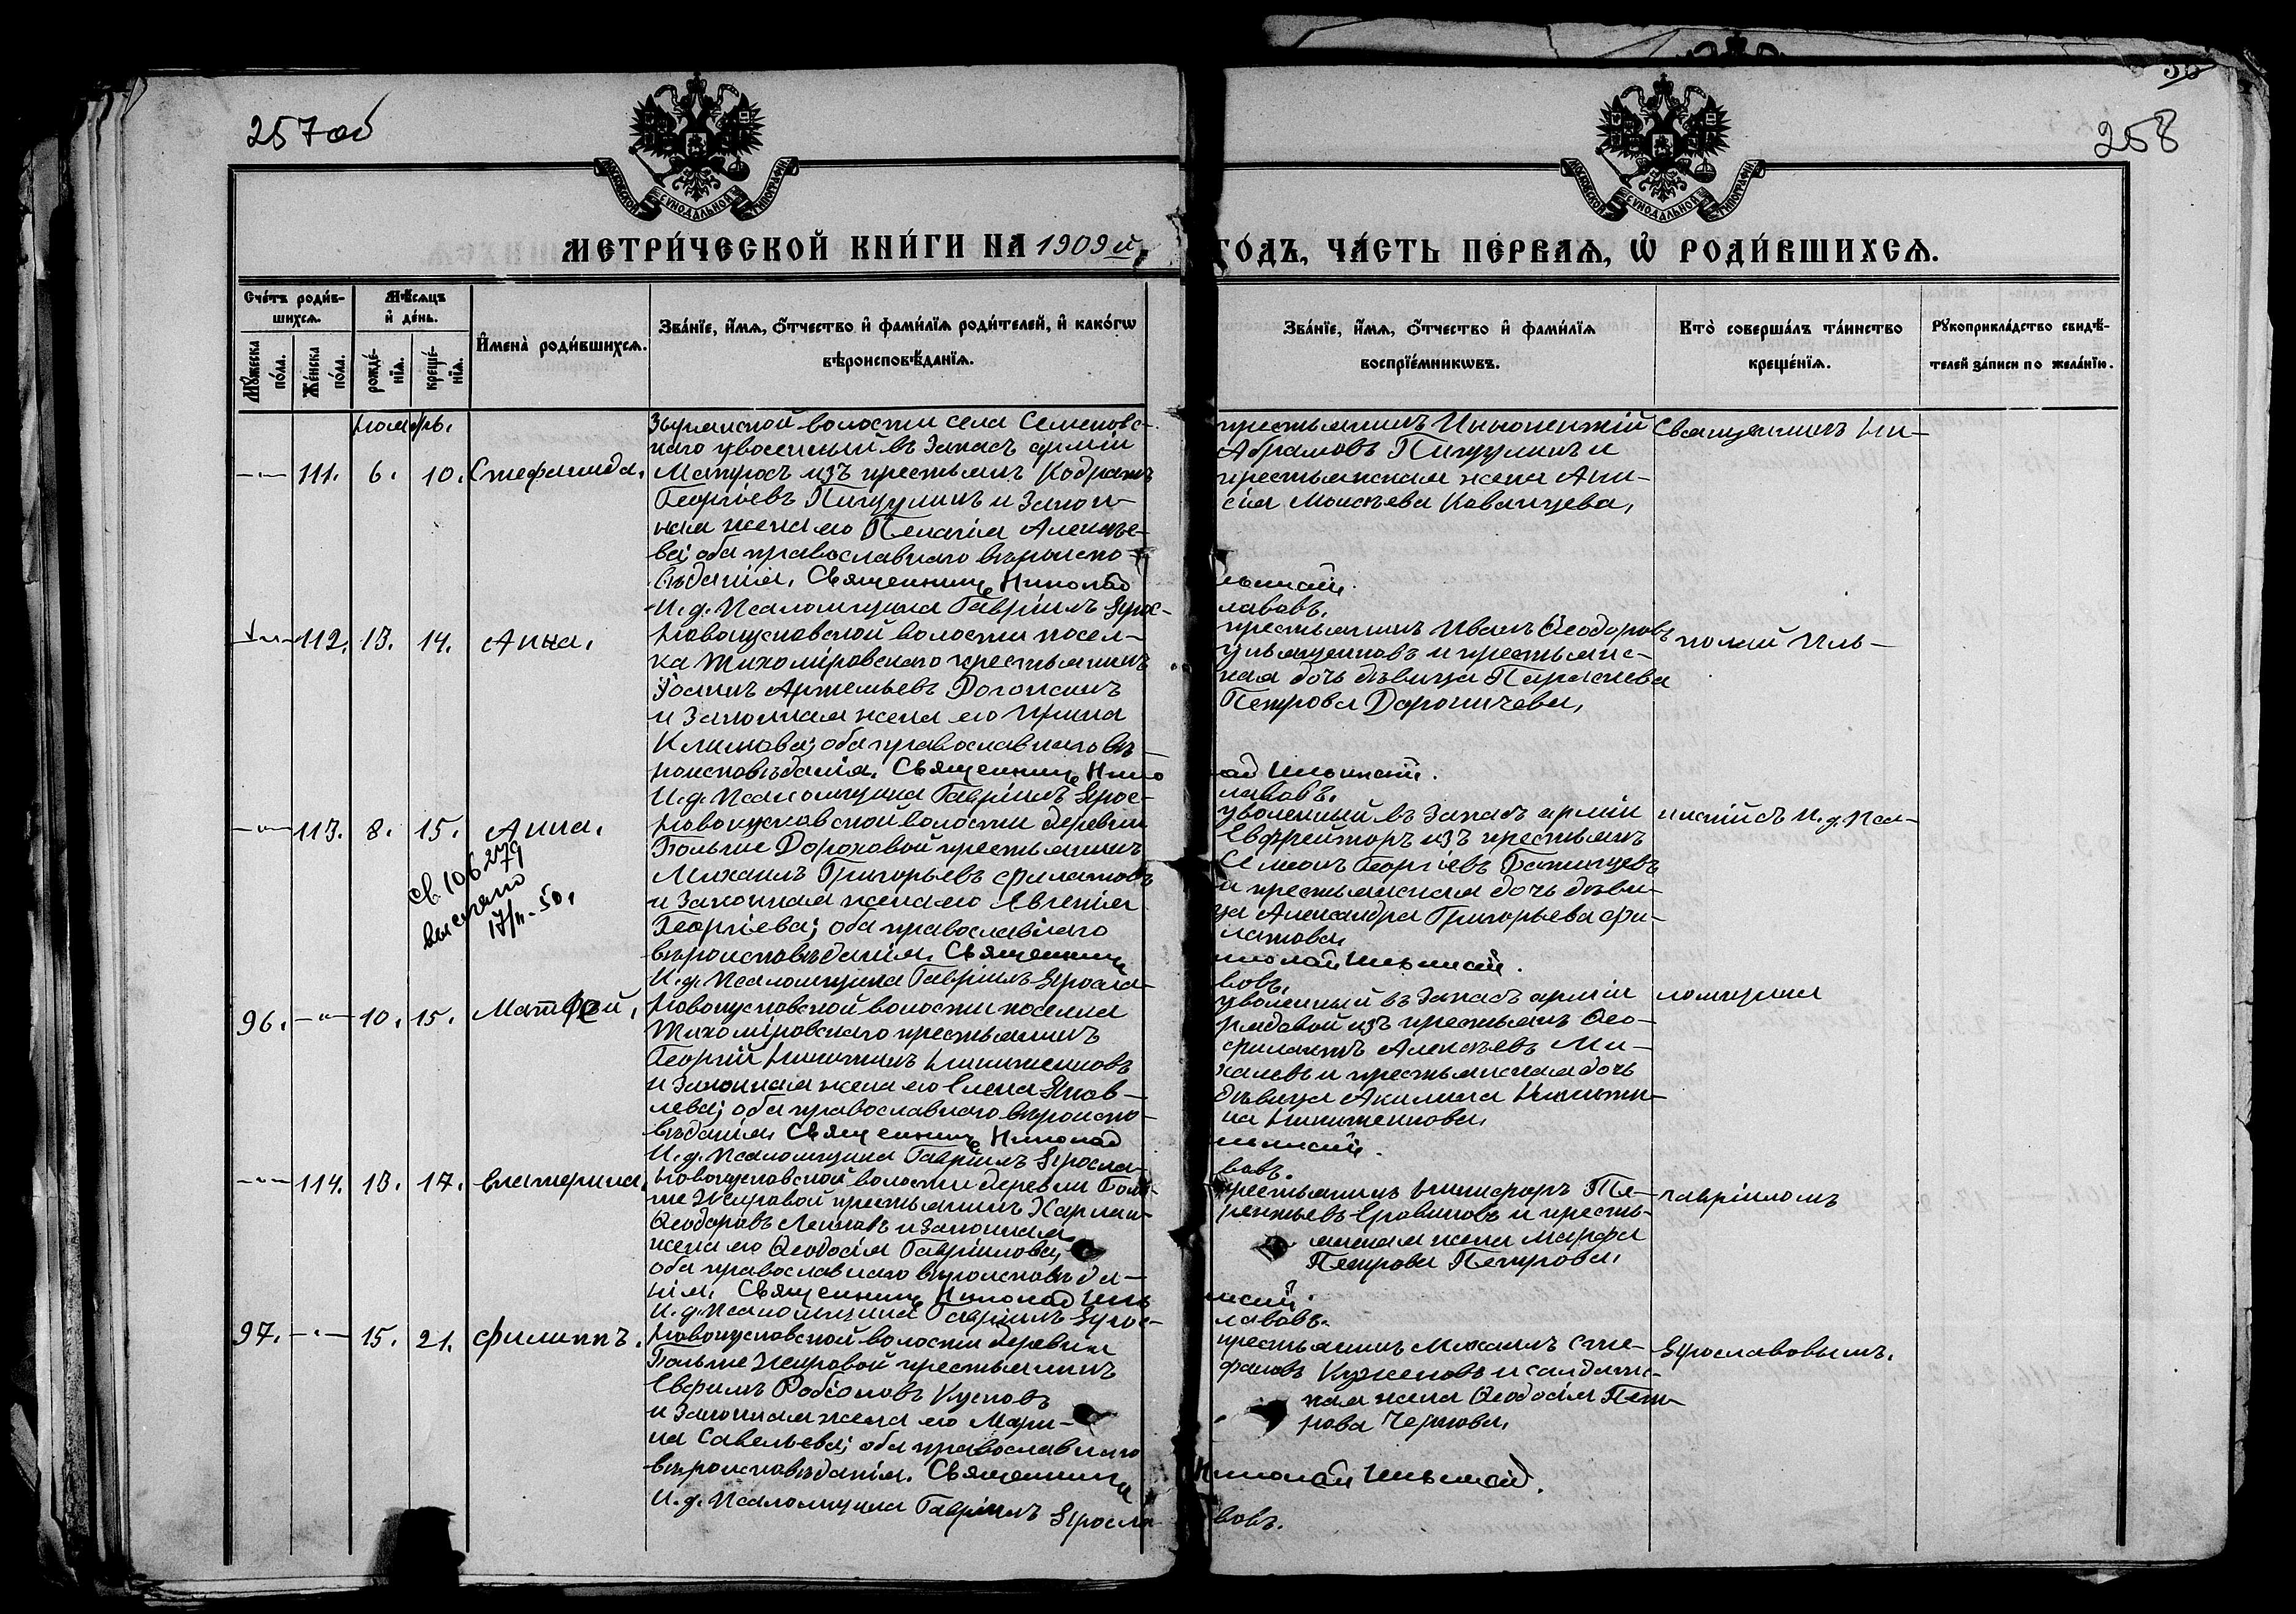 257 об
258
МЕТРИ́ЧЕСКОЙ КНИ́ГИ НА 1909 й
ГО́ДЪ, ЧА́СТЬ ПЕ́РВАѦ, Ѡ РОДИ́ВШИХСѦ.
Сче́тъ роди́в-
шихсѧ.
Мꙋ́жеска по́ла.
Же́нска по́ла.
Мѣ́сяцъ и де́нь.
рожде́-нїѧ.
креще́-нїѧ.
И҆мена̀ роди́вшихсѧ.
Зва́нїе, и҆́мѧ, ѻ҆́тчество и҆ фами́лїѧ роди́телей, и҆ како́гѡ
вѣроисповѣ́данїѧ.
Зва́нїе, и҆́мѧ, ѻ҆́тчество и҆ фами́лїѧ
воспрїе́мникѡвъ.
Кто̀ соверша́лъ та́инство
креще́нїѧ.
Рꙋкоприкла́дство свидѣ́-
телей за́писи по жела́нїю.
Ноябрь.
111. 6. 10. Стефанида.
волости села Семеновс-
каго уволенный въ запасъ арміи
Матросъ изъ крестьянъ Кодратъ
Георгіевъ Пичугинъ и закон-
ная жена его Пелагія Алексѣе-
ва; оба православнаго вѣроиспо-
вѣданія. Священникъ Николай
И. д. Псаломщика Гавріилъ Ярос-
крестьянинъ Иннокентій
Абрамовъ Пичугинъ и
крестьянская жена Ани-
сія Моисѣева Казанцева.
льинскій.
лавовъ.
Священникъ Ни-
112. 13. 14. Анна.
Новокусковской волости посел-
ка Тихоміровскаго крестьянинъ
Артемьевъ
и законная жена его Ирина
Климова; оба православнаго вѣ-
роисповѣданія. Священникъ Нико
И. д. Псаломщика Гавріилъ Ярос-
крестьянинъ Иванъ Ѳеодоровъ
и крестьянс-
кая дочь дѣвица Параскева
Петрова Дороничева.
ай Ильинскій.
лавовъ.
колай Иль-
113. 8. 15. Анна.
св. 106279
выслано
17/II-50.
Новокусковской волости деревни
Больше Дороховой крестьянинъ
Михаилъ Григорьевъ Филатовъ
и законная жена его Евгенія
Георгіева; оба православнаго
вѣроисповѣданія. Священникъ
И. д. Псаломщика Гавріилъ Яросла-
уволенный въ запасъ арміи
Ефрейторъ изъ крестьянъ
Семенъ Георгіевъ
и крестьянская дочь дѣви-
ца Александра Григорьева Фи-
латова.
иколай Ильинскій.
вовъ.
инскій съ И. д. Пса-
96. 10. 15. Матѳей.
Новокусковской волости поселка
Тихоміровскаго крестьянинъ
Георгій Никитинъ
и законная жена его Елена Яков-
лева; оба православнаго вѣроиспо-
вѣданія. Священникъ Николай
И. д. Псаломщика Гавріилъ Яросла-
уволенный въ запасъ арміи
рядовой изъ крестьянъ Ѳео-
филактъ Алексѣевъ Ми-
халевъ и крестьянская дочь
дѣвица Акилина Никити-
на
льинскій.
вовъ.
ломщика
114. 13. 17. Екатерина.
Новокусковской волости деревни Боль-
ше Жировой крестьянинъ
Ѳеодоровъ и законная
жена его Ѳеодосія Гавріилова;
оба православнаго вѣроисповѣда-
нія. Священникъ Николай Иль
И. д. Псаломщика Гавріилъ Ярос-
крестьянинъ Никифоръ Те-
рентьевъ и кресть-
янская жена Марфа
Петрова Петрова.
инскій.
лавовъ.
Гавріиломъ
97. 15. 21. Филиппъ.
Новокусковской волости деревни
Больше Жировой крестьянинъ
Евфимъ Родіоновъ Кусковъ
и законная жена его Мари-
на Савельева; оба православнаго
вѣроисповѣданія. Священникъ
И. д. Псаломщика Гавріилъ Яросла
крестьянинъ Михаилъ Сте-
фановъ и солдатс-
кая жена Ѳеодосія Пет-
рова Чернова.
Николай Ильинскій.
вовъ.
Ярославовымъ.